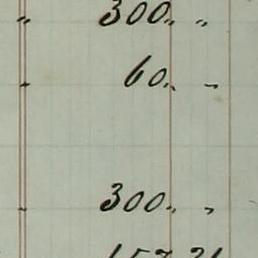 „ 300„ „
„ 60„ „
„ 300„ „